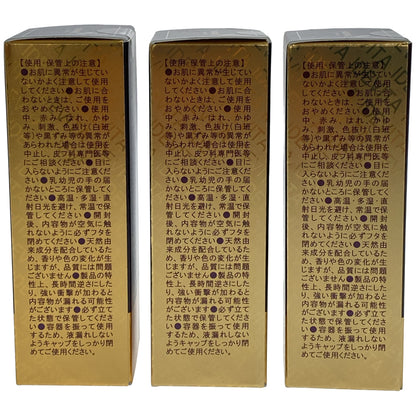 【使用・保管上の注意】
●お肌に異常が生じてい
ないかよく注意して使用
してください●お肌に合
わないときは、ご使用を
おやめください●使用
中、赤み、はれ、かゆ
み、刺激、色抜け(白斑
等)や黒ずみ等の異常が
あらわれた場合は使用を
中止し、皮フ科専門医等
にご相談ください●目に
入らないようにご注意くだ
さい●乳幼児の手の届
かないところに保管してく
ださい●高温・多湿・直
射日光を避け、常温で保
管してください●開封
後、内容物が空気に触
れないように必ずフタを
閉めてください●天然由
来成分を配合しているた
め、香りや色の変化が生
じますが、品質には問題
ございません●製品の特
性上、長時間逆さにした
り、強い衝撃が加わると
内容物が漏れる可能性
がございます●必ず立て
た状態で保管してくださ
い●容器を振って使用
するため、液漏れしない
ようキャップをしっかり閉
めてご使用ください。
【使用・保管上の注意】
●お肌に異常が生じてい
ないかよく注意して使用
してください●お肌に合
わないときは、ご使用を
おやめください●使用
中、赤み、はれ、かゆ
み、刺激、色抜け(白斑
等)や黒ずみ等の異常が
あらわれた場合は使用を
中止し、皮フ科専門医等
にご相談ください●目に
入らないようにご注意くだ
さい●乳幼児の手の届
かないところに保管してく
ださい●高温・多湿・直
射日光を避け、常温で保
管してください●開封
後、内容物が空気に触
れないように必ずフタを
閉めてください●天然由
来成分を配合しているた
め、香りや色の変化が生
じますが、品質には問題
ございません●製品の特
性上、長時間逆さにした
り、強い衝撃が加わると
内容物が漏れる可能性
がございます●必ず立て
た状態で保管してくださ
い●容器を振って使用
するため、液漏れしない
ようキャップをしっかり閉
めてご使用ください。
【使用・保管上の注意】
●お肌に異常が生じてい
ないかよく注意して使用
してください●お肌に合
わないときは、ご使用を
おやめください●使用
中、赤み、はれ、かゆ
み、刺激、色抜け(白斑
等)や黒ずみ等の異常が
あらわれた場合は使用を
中止し、皮フ科専門医等
にご相談ください●目に
入らないようにご注意くだ
さい●乳幼児の手の届
かないところに保管してく
ださい●高温・多湿・直
射日光を避け、常温で保
管してください●開封
後、内容物が空気に触
れないように必ずフタを
閉めてください●天然由
来成分を配合しているた
め、香りや色の変化が生
じますが、品質には問題
ございません●製品の特
性上、長時間逆さにした
り、強い衝撃が加わると
内容物が漏れる可能性
がございます●必ず立て
た状態で保管してくださ
い●容器を振って使用
するため、液漏れしない
ようキャップをしっかり閉
めてご使用ください。